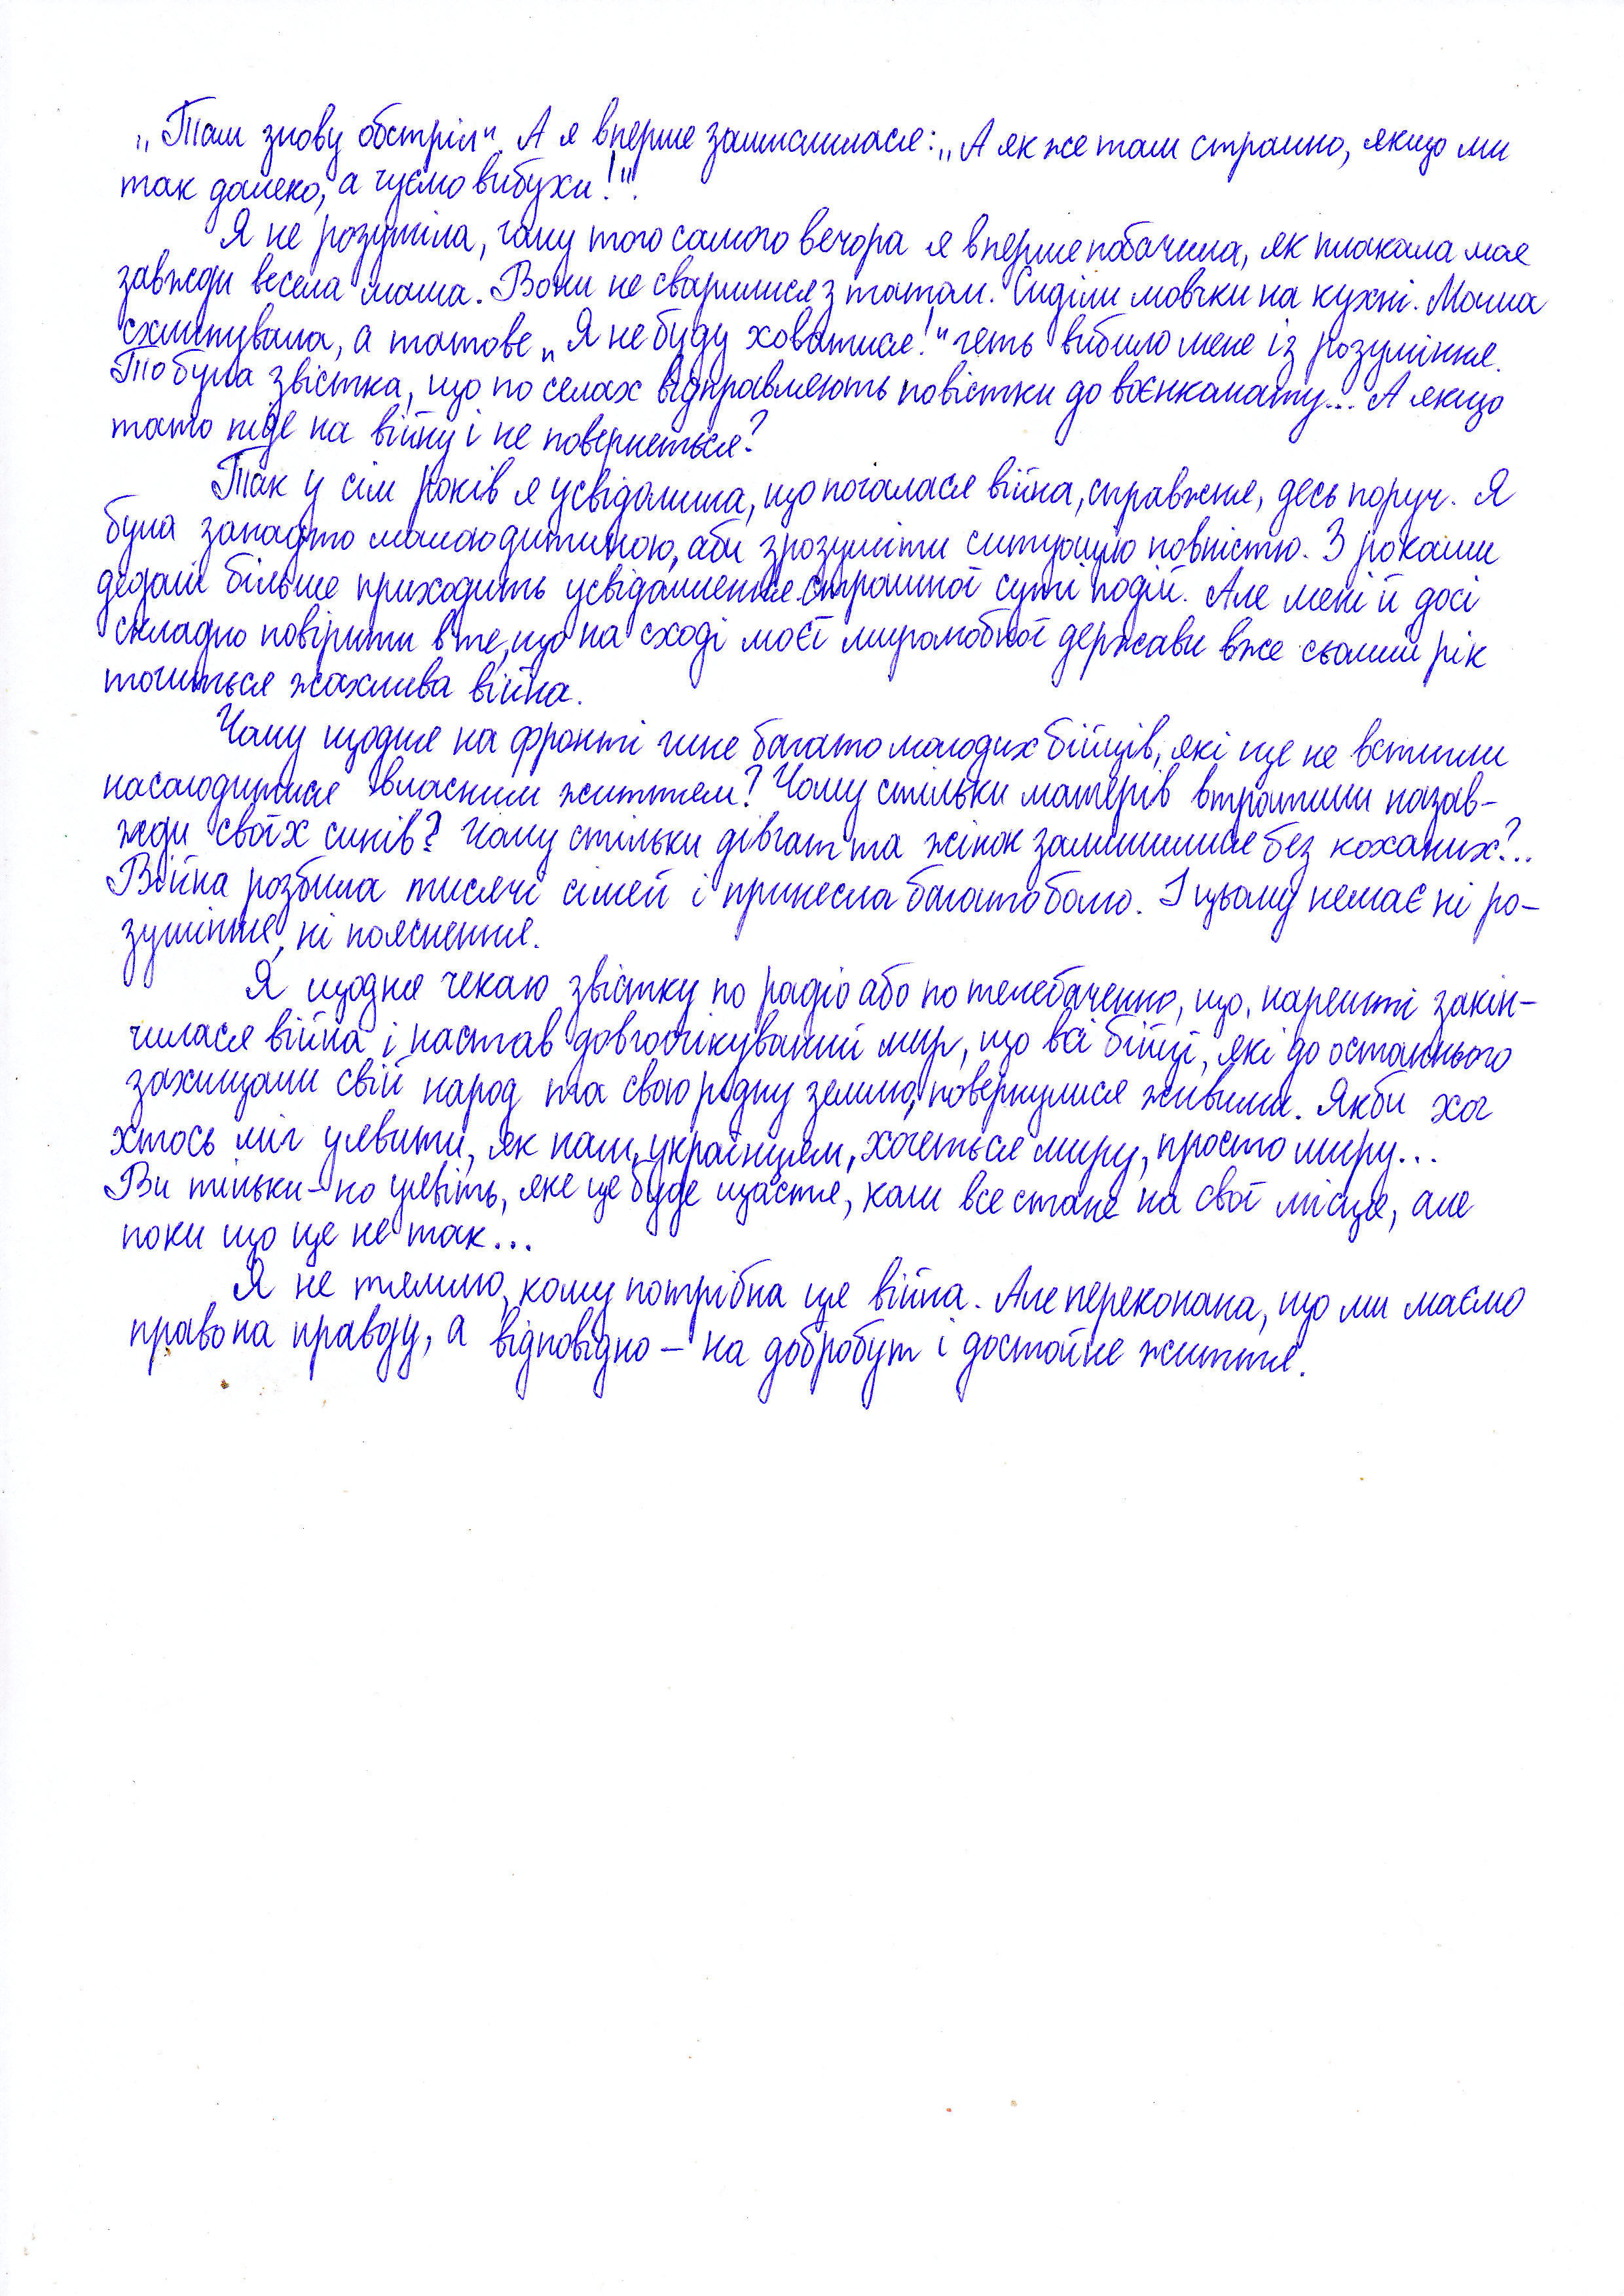 „Там знову обстріл“. А я вперше замислилася: „А як же там страшно, якщо ми
так далеко, а чуємо вибухи!“.
Я не розуміла, чому того самого вечора я вперше побачила, як плакала моя
завжди весела мама. Вони не сварилися з татом. Сиділи мовчки на кухні. Мама
схлипувала, а татове „Я не буду ховатися!“ геть вибило мене із розуміння.
То була звістка, що по селах відправляють повістки до воєнкомату... А якщо
тато піде на війну і не повернеться?
Так у сім років я усвідомила, що почалася війна, справжня, десь поруч. Я
була занадто малою дитиною, аби зрозуміти ситуацію повністю. З роками
дедалі більше приходить усвідомлення страшної суті подій. Але мені й досі
складно повірити в те, що на сході моєї миролюбної держави вже сьомий рік
точиться жахлива війна.
Чому щодня на фронті гине багато молодих бійців, які ще не встигли
насолодитися власним життям? Чому стільки матерів втратили назав-
жди своїх синів? Чому стільки дівчат та жінок залишилися без коханих?..
Війна розбила тисячі сімей і принесла багато болю. І цьому немає ні ро-
зуміння, ні пояснення.
Я щодня чекаю звістку по радіо або по телебаченню, що, нарешті закін-
чилася війна і настав довгоочікуваний мир, що всі бійці, які до останнього
захищали свій народ та свою рідну землю, повернулися живими. Якби хоч
хтось міг уявити, як нам, українцям, хочеться миру, просто миру...
Ви тільки-но уявіть, яке це буде щастя, коли все стане на свої місця, але
поки що це не так...
Я не тямлю, кому потрібна ця війна. Але переконана, що ми маємо
право на правду, а відповідно – на добробут і достойне життя.